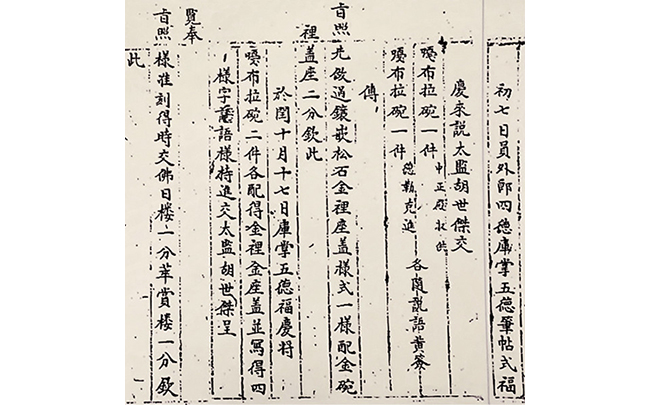 初七日員外郎四德庫掌五德筆帖式福
慶來說太監胡世傑交
嘎布拉碗一件 中正殿收供
嘎布拉碗一件 德勒克進 各隨説語黃簽
傳
旨照先做過鑲嵌松石金裡座蓋樣式一樣配金碗
裡蓋座二分欽此
於閏十月十七日庫掌五德福慶將
嘎布拉碗二件各配得金裡金座蓋並寫得四
樣字語樣持進交太監胡世傑呈
覽奉
旨照樣准刻得時交佛日樓一分萃賞樓一分欽
此